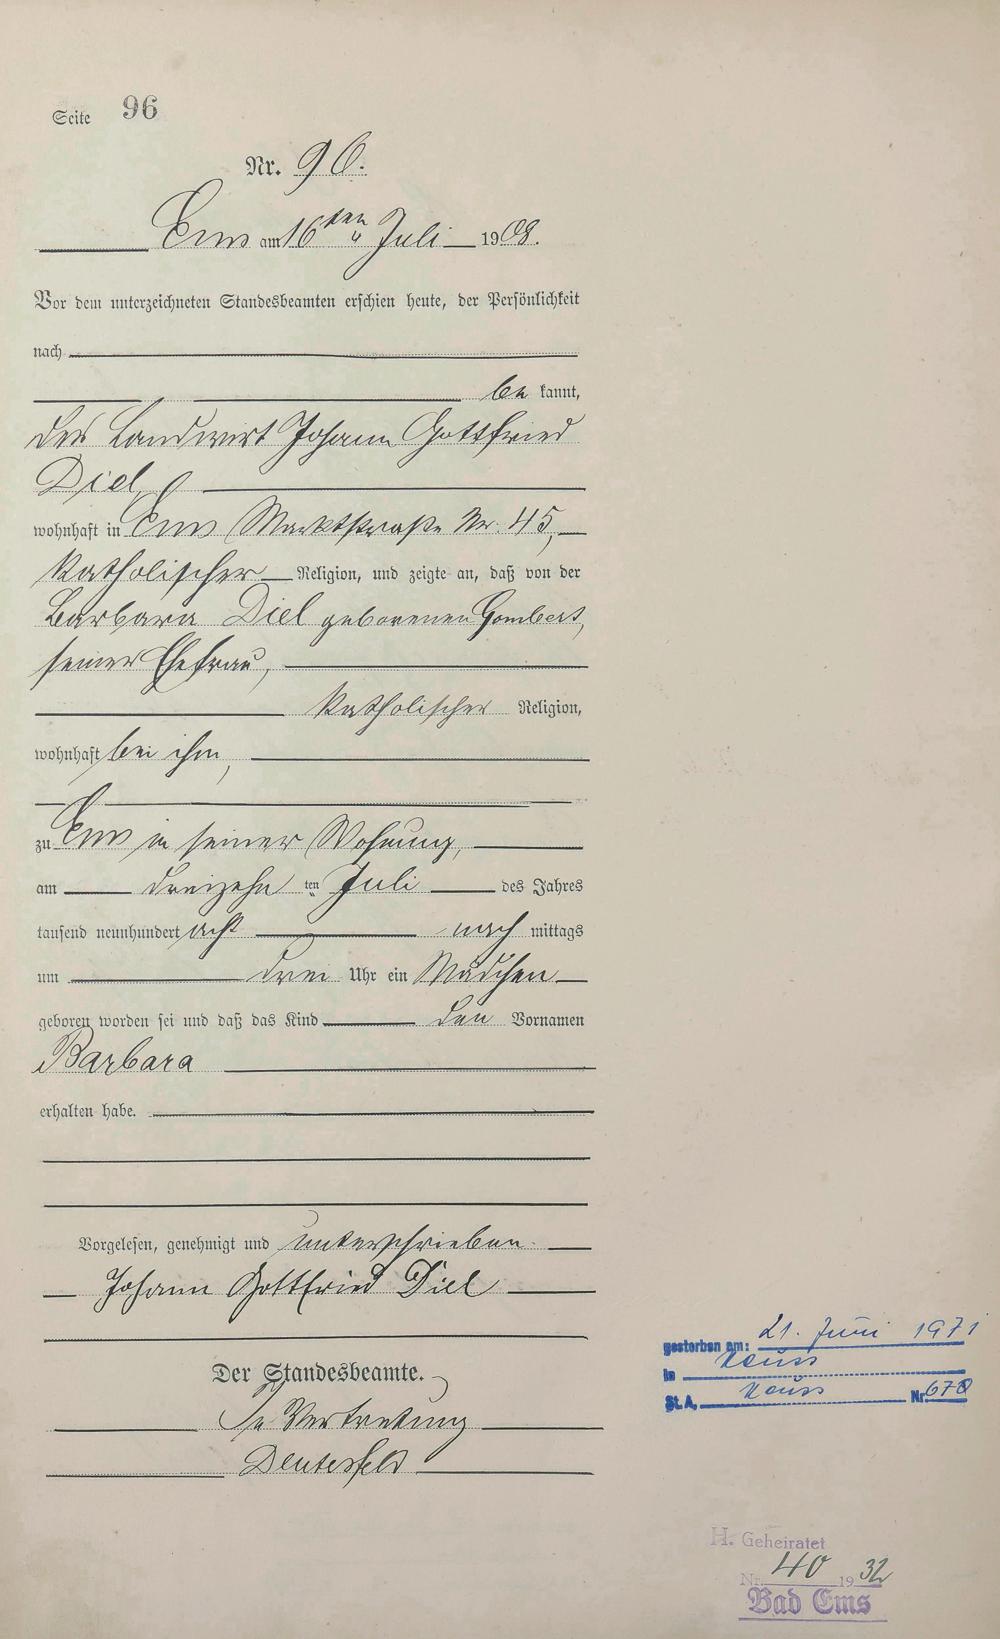 Seite 96
Nr. 96.
Ems am 16ten Juli 1908.
Vor dem unterzeichneten Standesbeamten erschien heute, der Persönlichkeit
nach
be kannt,
der Landwirt Johann Gottfried
Diel,
wohnhaft in Ems Marktstraße Nr. 45,
katholischer Religion, und zeigte an, daß von der
Barbara Diel geborenen Gombert,
seiner Ehefrau,
katholischer Religion,
wohnhaft bei ihm,
zu Ems in seiner Wohnung,
am dreizehn ten Juli des Jahres
tausend neunhundert acht nach mittags
um drei Uhr ein Mädchen
geboren worden sei und daß das Kind den Vornamen
Barbara
erhalten habe.
Vorgelesen, genehmigt und unterschrieben.
Johann Gottfried Diel
Der Standesbeamte.
In Vertretung
gestorben am: 21. Juni 1971
in Neuss
St. A. Neuss Nr. 670
H. Geheiratet
Nr. 40 1932
Bad Ems